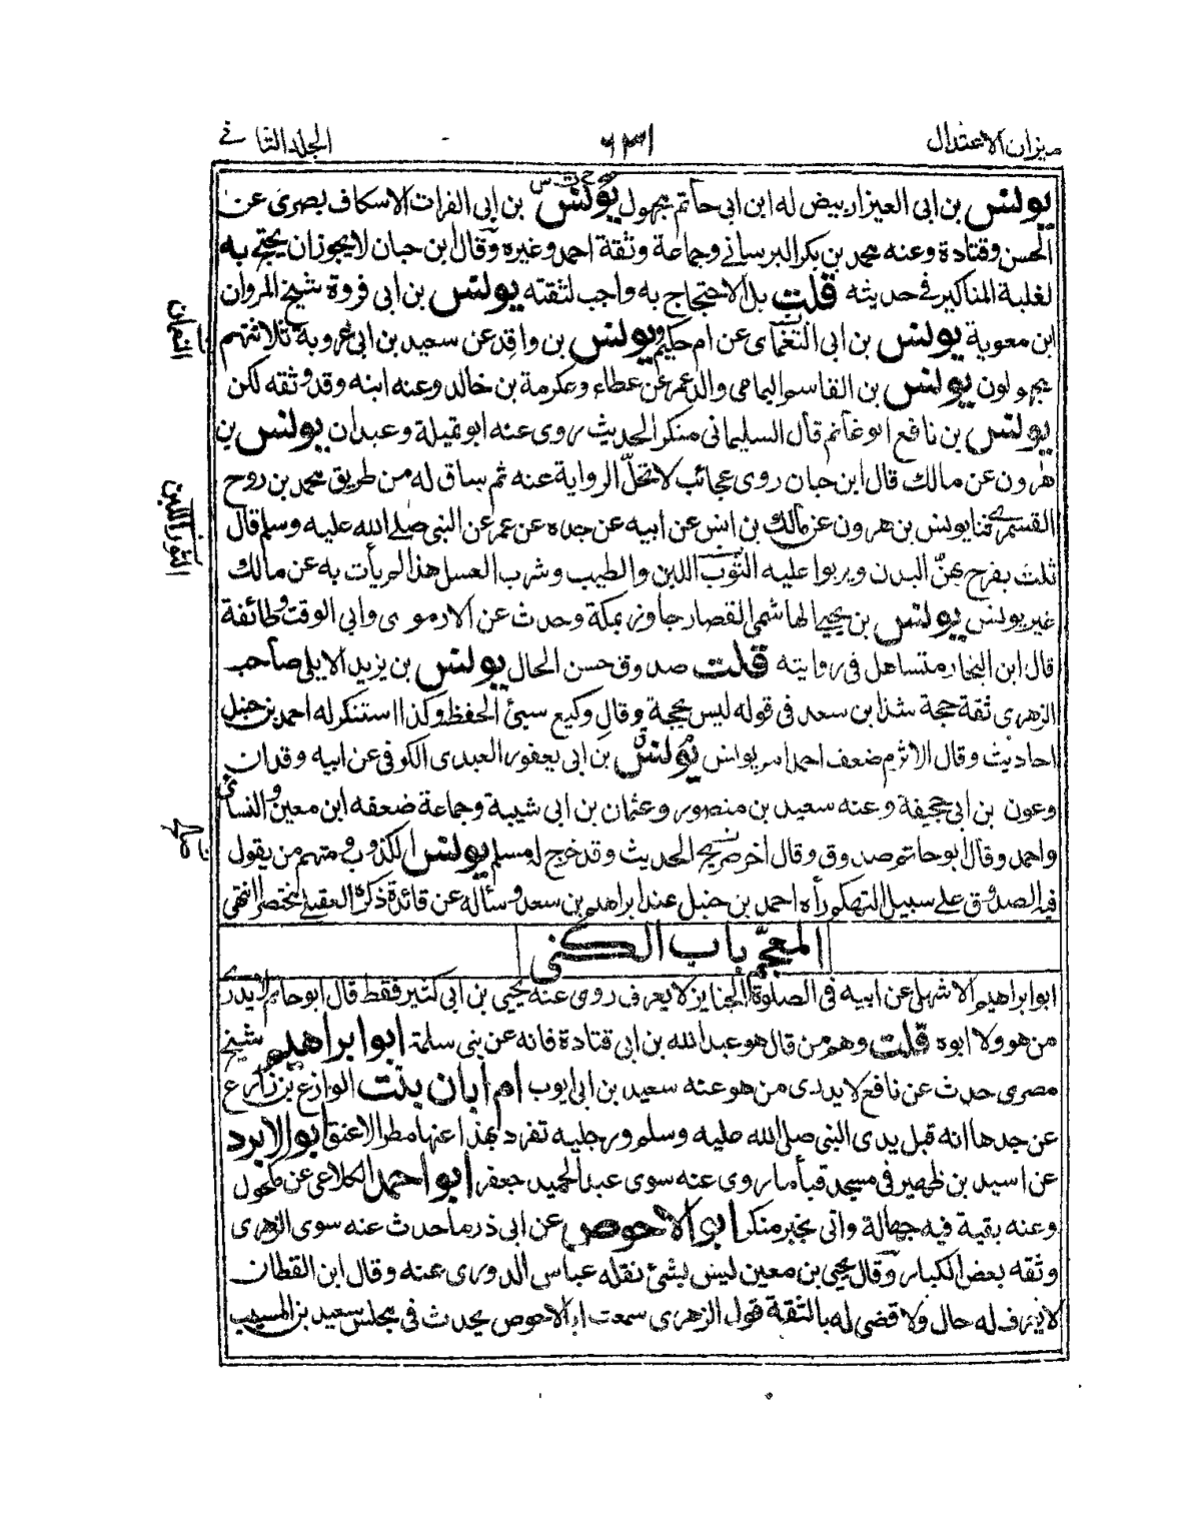 ميزان الاعتدال
٦٣١
الجلد الثاني
يونس بن ابى العيزار بيض له ابن ابى حاتم مجهول يونس بن ابى الفرات الاسكاف بصرى عن
الحسن وقتادة وعنه محمد بن بكر البرساني وجماعة وثقة احمد وغيره وقال ابن حبان لا يجوز ان يحتج به
لغلبة المناكير في حديثه قلت بل الاحتجاج به واجب لثقته يونس بن ابى فروة شيخ المروان
ابن معوية يونس بن ابى النعمان عن ام حكيم ويونس بن واقد عن سعيد بن ابى عروبة ثلاثتهم
مجهولون يونس بن القاسم اليمامى والد عمر عن عطاء وعكرمة بن خالد وعنه ابنه وقد وثقه لكن
يونس بن نافع ابو غانم قال السليمانى منكر الحديث روى عنه ابو تميلة وعبدان يونس بن
هرون عن مالك قال ابن حبان روى عجائب لا تحل الرواية عنه ثم ساق له من طريق محمد بن روح
القسرى ثنا يونس بن هرون عن مالك بن انس عن ابيه عن جده عن عمر عن النبى صلى الله عليه وسلم قال
ثلث يفرح بهن البدن ويربوا عليه الثوب اللبن والطيب وشرب العسل هذا لم يأت به عن مالك
غير يونس يونس بن يحيى الهاشمى القصار جاور بمكة وحدث عن الارموى وابى الوقت وطائفة
قال ابن النجار متساهل فى روايته قلت صدوق حسن الحال يونس بن يزيد الايلى صاحب
الزهرى ثقة حجة شذ ابن سعد فى قوله ليس بحجة وقال وكيع سيئ الحفظ وكذا استنكر له احمد بن حنبل
احاديث وقال الاثرم ضعف احمد امر يونس يونس بن ابى يعفور العبدى الكوفى عن ابيه وقدان
وعون بن ابى جحيفة وعنه سعيد بن منصور وعثمان بن ابى شيبة وجماعة ضعفه ابن معين والنسائى
واحمد وقال ابو حاتم صدوق وقال اخر صحيح الحديث وقد خرج له مسلم يونس الكذوب متهم من يقول
فيه الصدوق على سبيل التهكم رآه احمد بن حنبل عند ابراهيم بن سعد وسأله عن فائدة ذكره العقيلى مختصرا انتهى
المعجم باب الكنى
ابو ابراهيم الاشهلى عن ابيه فى الصلوة الجنايز لا يعرف روى عنه يحيى بن ابى كثير فقط قال ابو حاتم لا يدرى
من هو ولا ابوه قلت وهم من قال هو عبد الله بن ابى قتادة فانه عن بنى سلمة ابو ابراهيم شيخ
مصرى حدث عن نافع لا يدرى من هو عنه سعيد بن ابى ايوب ام ابان بنت الوازع بن زارع
عن جدها انه قبل يدى النبى صلى الله عليه وسلم ورجليه تفرد بهذا عنها مطر الاعنق ابو الابرد
عن اسيد بن ظهير فى مسجد قبأ ما روى عنه سوى عبد الحميد جعفر ابو احمد الكلاعى عن مكحول
وعنه بقية فيه جهالة واتى بخبر منكر ابو الاحوص عن ابى ذر ما حدث عنه سوى الزهرى
وثقه بعض الكبار وقال يحيى بن معين ليس بشئ نقله عباس الدورى عنه وقال ابن القطان
لا يعرف له حال ولا قضى له بالثقة قول الزهرى سمعت ابا الاحوص يحدث فى مجلس سعيد بن المسيب
النعمان